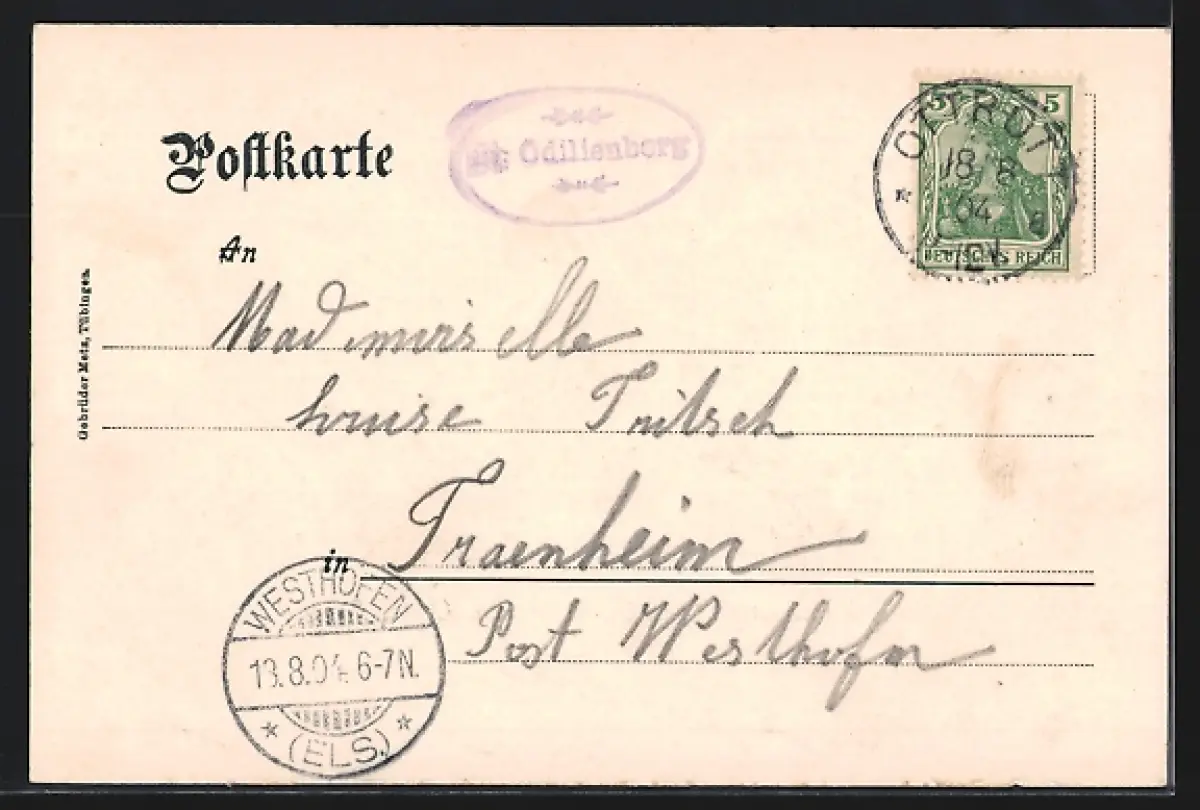 Postkarte
St. Odilienberg
5 5
DEUTSCHES REICH
OTTROTT
18 8
04
a
12V
An
Mademoiselle
Louise Fritsch
in Traenheim
Post Westhofen
WESTHOFEN
13.8.04. 6-7N.
(ELS.)
Gebrüder Metz, Tübingen.